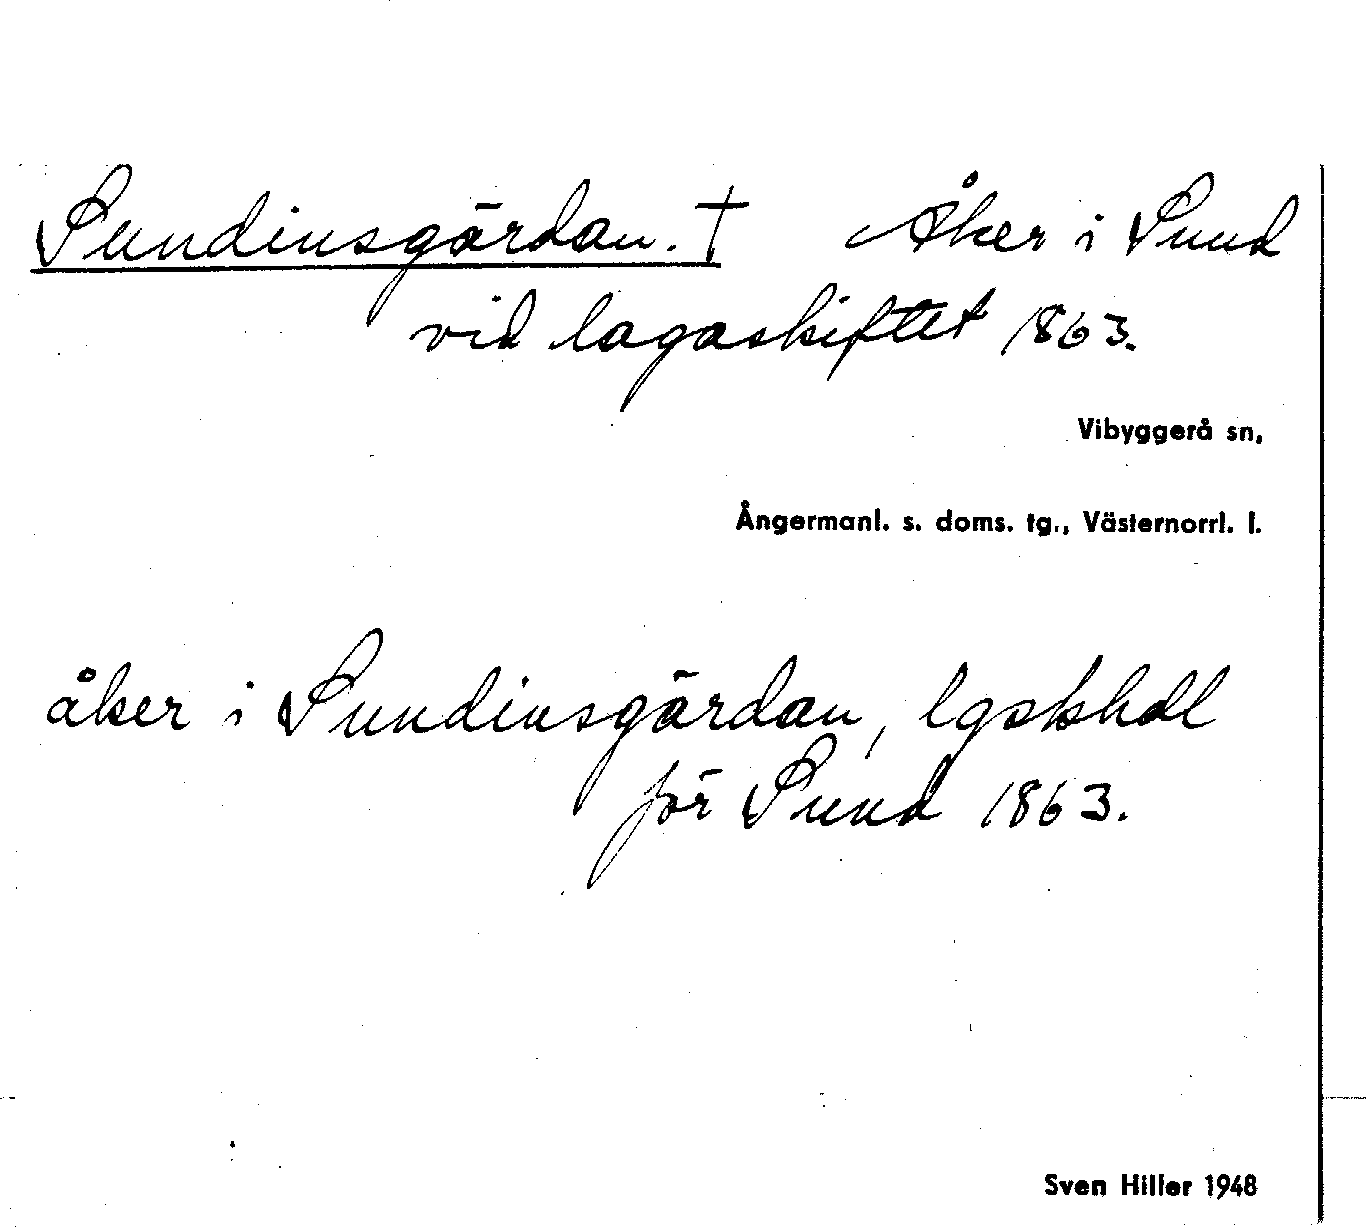 Sundinsgärdan. † Åker i Sund
vid lagaskiftet 1863.
Vibyggerå sn,
Ångermanl. s. doms. tg., Västernorrl. l.
åker i Sundinsgärdan, lgskhdl
för Sund 1863.
Sven Hiller 1948